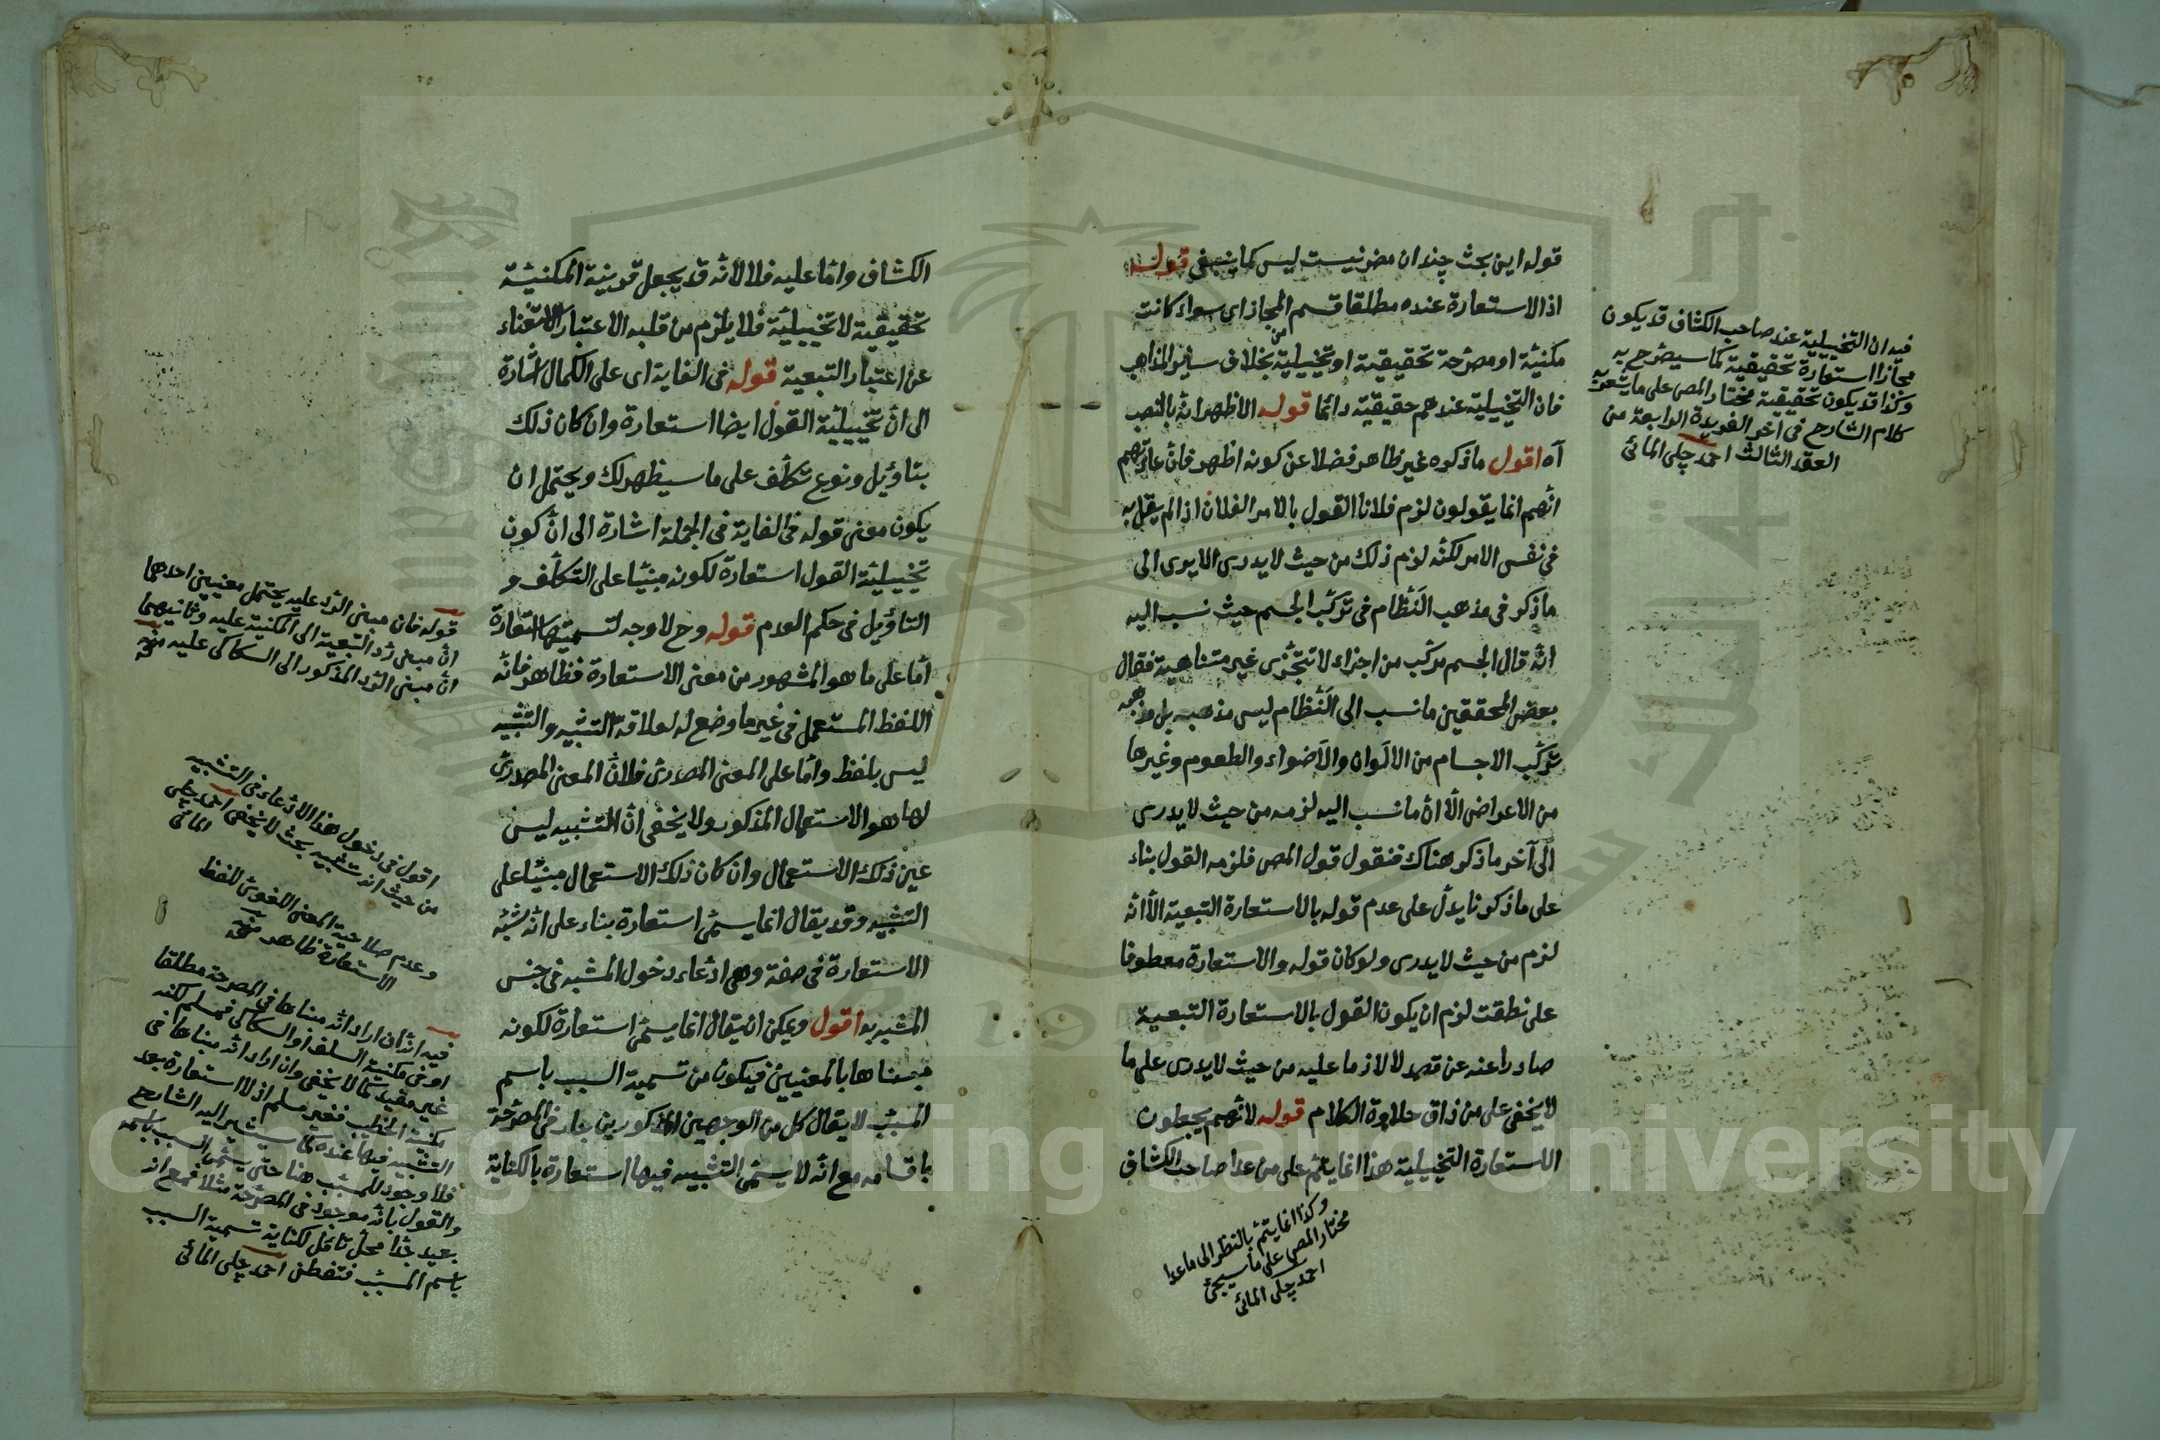 قوله اين بحث چندان مضر نيست ليس كما ينبغى قوله
اذ الاستعارة عنده مطلقا قسم المجاز اى سواء كانت
مكنيّة او مصرّحة تحقيقية او تخييلية بخلاف سائر المذاهب
فان التخييلية عندهم حقيقيّة دائما قوله الاظهر انه بالنصب
آه اقول ما ذكره غير ظاهر فضلا عن كونه اظهر فانّ عادتهم
انّهم انما يقولون لزم فلانا القول بالامر الفلان اذا لم يقل به
فى نفس الامر لكنّه لزم ذلك من حيث لا يدرى الا يرى الى
ما ذكر فى مذهب النّظام فى تركّب الجسم حيث نسب اليه
انّه قال الجسم مركّب من اجزاء لا تتجزّى غير متناهية فقال
بعض المحققين ما نسب الى النّظام ليس مذهبه بل مذهبه
تركّب الاجسام من الالوان والاضواء والطعوم وغيرها
من الاعراض الّا انّ ما نسب اليه لزمه من حيث لا يدرى
الى آخر ما ذكر هناك فنقول قول المص فلزمه القول بناء
على ما ذكرنا يدلّ على عدم قوله بالاستعارة التبعية الّا انّه
لزم من حيث لا يدرى ولو كان قوله والاستعارة معطوفا
على نطقت لزم ان يكون القول بالاستعارة التبعية
صادرا عنه عن قصد لا لازما عليه من حيث لا يدرى على ما
لا يخفى على من ذاق حلاوة الكلام قوله لانّهم يجعلون
الاستعارة التخييلية هذا انما يتمّ على من عدا صاحب الكشاف
وكذا انما يتمّ بالنظر الى ما عدا
مختار المص على ما سيجئ
احمد چلبى المائى
فيه ان التخييلية عند صاحب الكشاف قد يكون
مجازا استعارة تحقيقية كما سيصرّح به
وكذا قد يكون تحقيقية مختار المص على ما
كلام الشارح فى آخر الفريدة الرابعة من
العقد الثالث احمد چلبى المائى
الكشاف وامّا عليه فلا لانّه قد يجعل قرينة المكنيّة
تحقيقية لا تخييليّة فلا يلزم من قلبه الاعتبار الاستغناء
عن اعتبار التبعية قوله فى الغاية اى على الكمال اشارة
الى انّ تخييليّة القول ايضا استعارة وان كان ذلك
بتاؤيل ونوع تكلّف على ما سيظهر لك ويحتمل ان
يكون معنى قوله فى الغاية فى الجملة اشارة الى انّ كون
تخييليّة القول استعارة لكونه مبنيّا على التكلّف و
التاؤيل فى حكم العدم قوله وح لا وجه لتسميتها استعارة
امّا على ما هو المشهور من معنى الاستعارة فظاهر فانّه
اللفظ المستعمل فى غير ما وضع له لعلاقة التشبيه والتشبيه
ليس بلفظ وامّا على المعنى المصدرى فلانّ المعنى المصدرىّ
لها هو الاستعمال المذكور ولا يخفى انّ التشبيه ليس
عين ذلك الاستعمال وان كان ذلك الاستعمال مبنيّا على
التشبيه وقد يقال انما يسمّى استعارة بناء على انّه شبّه
الاستعارة فى صفة وهى ادّعاء دخول المشبه فى جنس
المشبه به اقول ويمكن ان يقال انما يسمّى استعارة لكونه
مبناها بالمعنيين فيكون من تسمية السبب باسم
المسبّب لا يقال كل من الوجهين المذكورين جار فى المصرّحة
باقسامه مع انّه لا يسمّى التشبيه فيها استعارة بالكناية
قوله فان مبنى الردّ عليه يحتمل معنيين احدهما
انّ مبنى ردّ التبعية الى المكنية عليه وثانيهما
انّ مبنى الردّ المذكور الى السكاكى عليه منه
اقول فى دخول هذا الادّعاء فى التشبيه
من حيث انه تشبيه بحث لا يخفى احمد چلبى
المائى
وعدم صلاحية المعنى اللغوىّ للفظ
الاستعارة ظاهر منه
فيه انّه ان اراد انّه مبناها فى المصرحة مطلقا
او فى مكنية السلف او السكاكى فمسلم لكنه
غير مفيد كما لا يخفى وان اراد انّه مبناها فى
مكنية الخطيب فغير مسلم اذ لا استعارة بعد
التشبيه فيها عنده كما سيشير اليه الشارح
فلا وجود للمسبّب هنا حتى يسمّى السبب باسمه
والقول بانّه موجود فى المصرّحة مثلا فمع انه
بعيد جدّا محلّ تامّل لكفاية تسمية السبب
باسم المسبّب فتفطن احمد چلبى المائى
Copyright © King Saud University